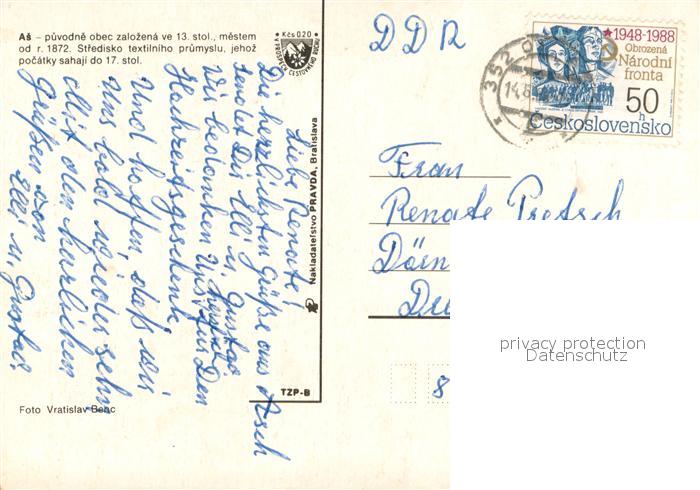 Aš – původně obec založená ve 13. stol., městem
od r. 1872. Středisko textilního průmyslu, jehož
počátky sahají do 17. stol.
Kčs 0,20
V PROSPĚCH CESTOVNÉHO RUCHU
Liebe Renate!
Die herzlichsten Güße aus Asch
sendet Dir Elli u. Gustav.
Wir bedanken Uns für Den
Hochzeitsgeschenk
Und hoffen, daß wir
Uns bald wieder sehn
Mit den herzlichen
Grüßen von
Elli u. Gustav.
Nakladateľstvo PRAVDA, Bratislava
TZP-B
Foto Vratislav Benc
DDR
1948-1988
Obrozená
Národní
fronta
50 h
Československo
352 0
14.8
Frau
Renate Pretsch
Dörn
Deu
8
privacy protection
Datenschutz